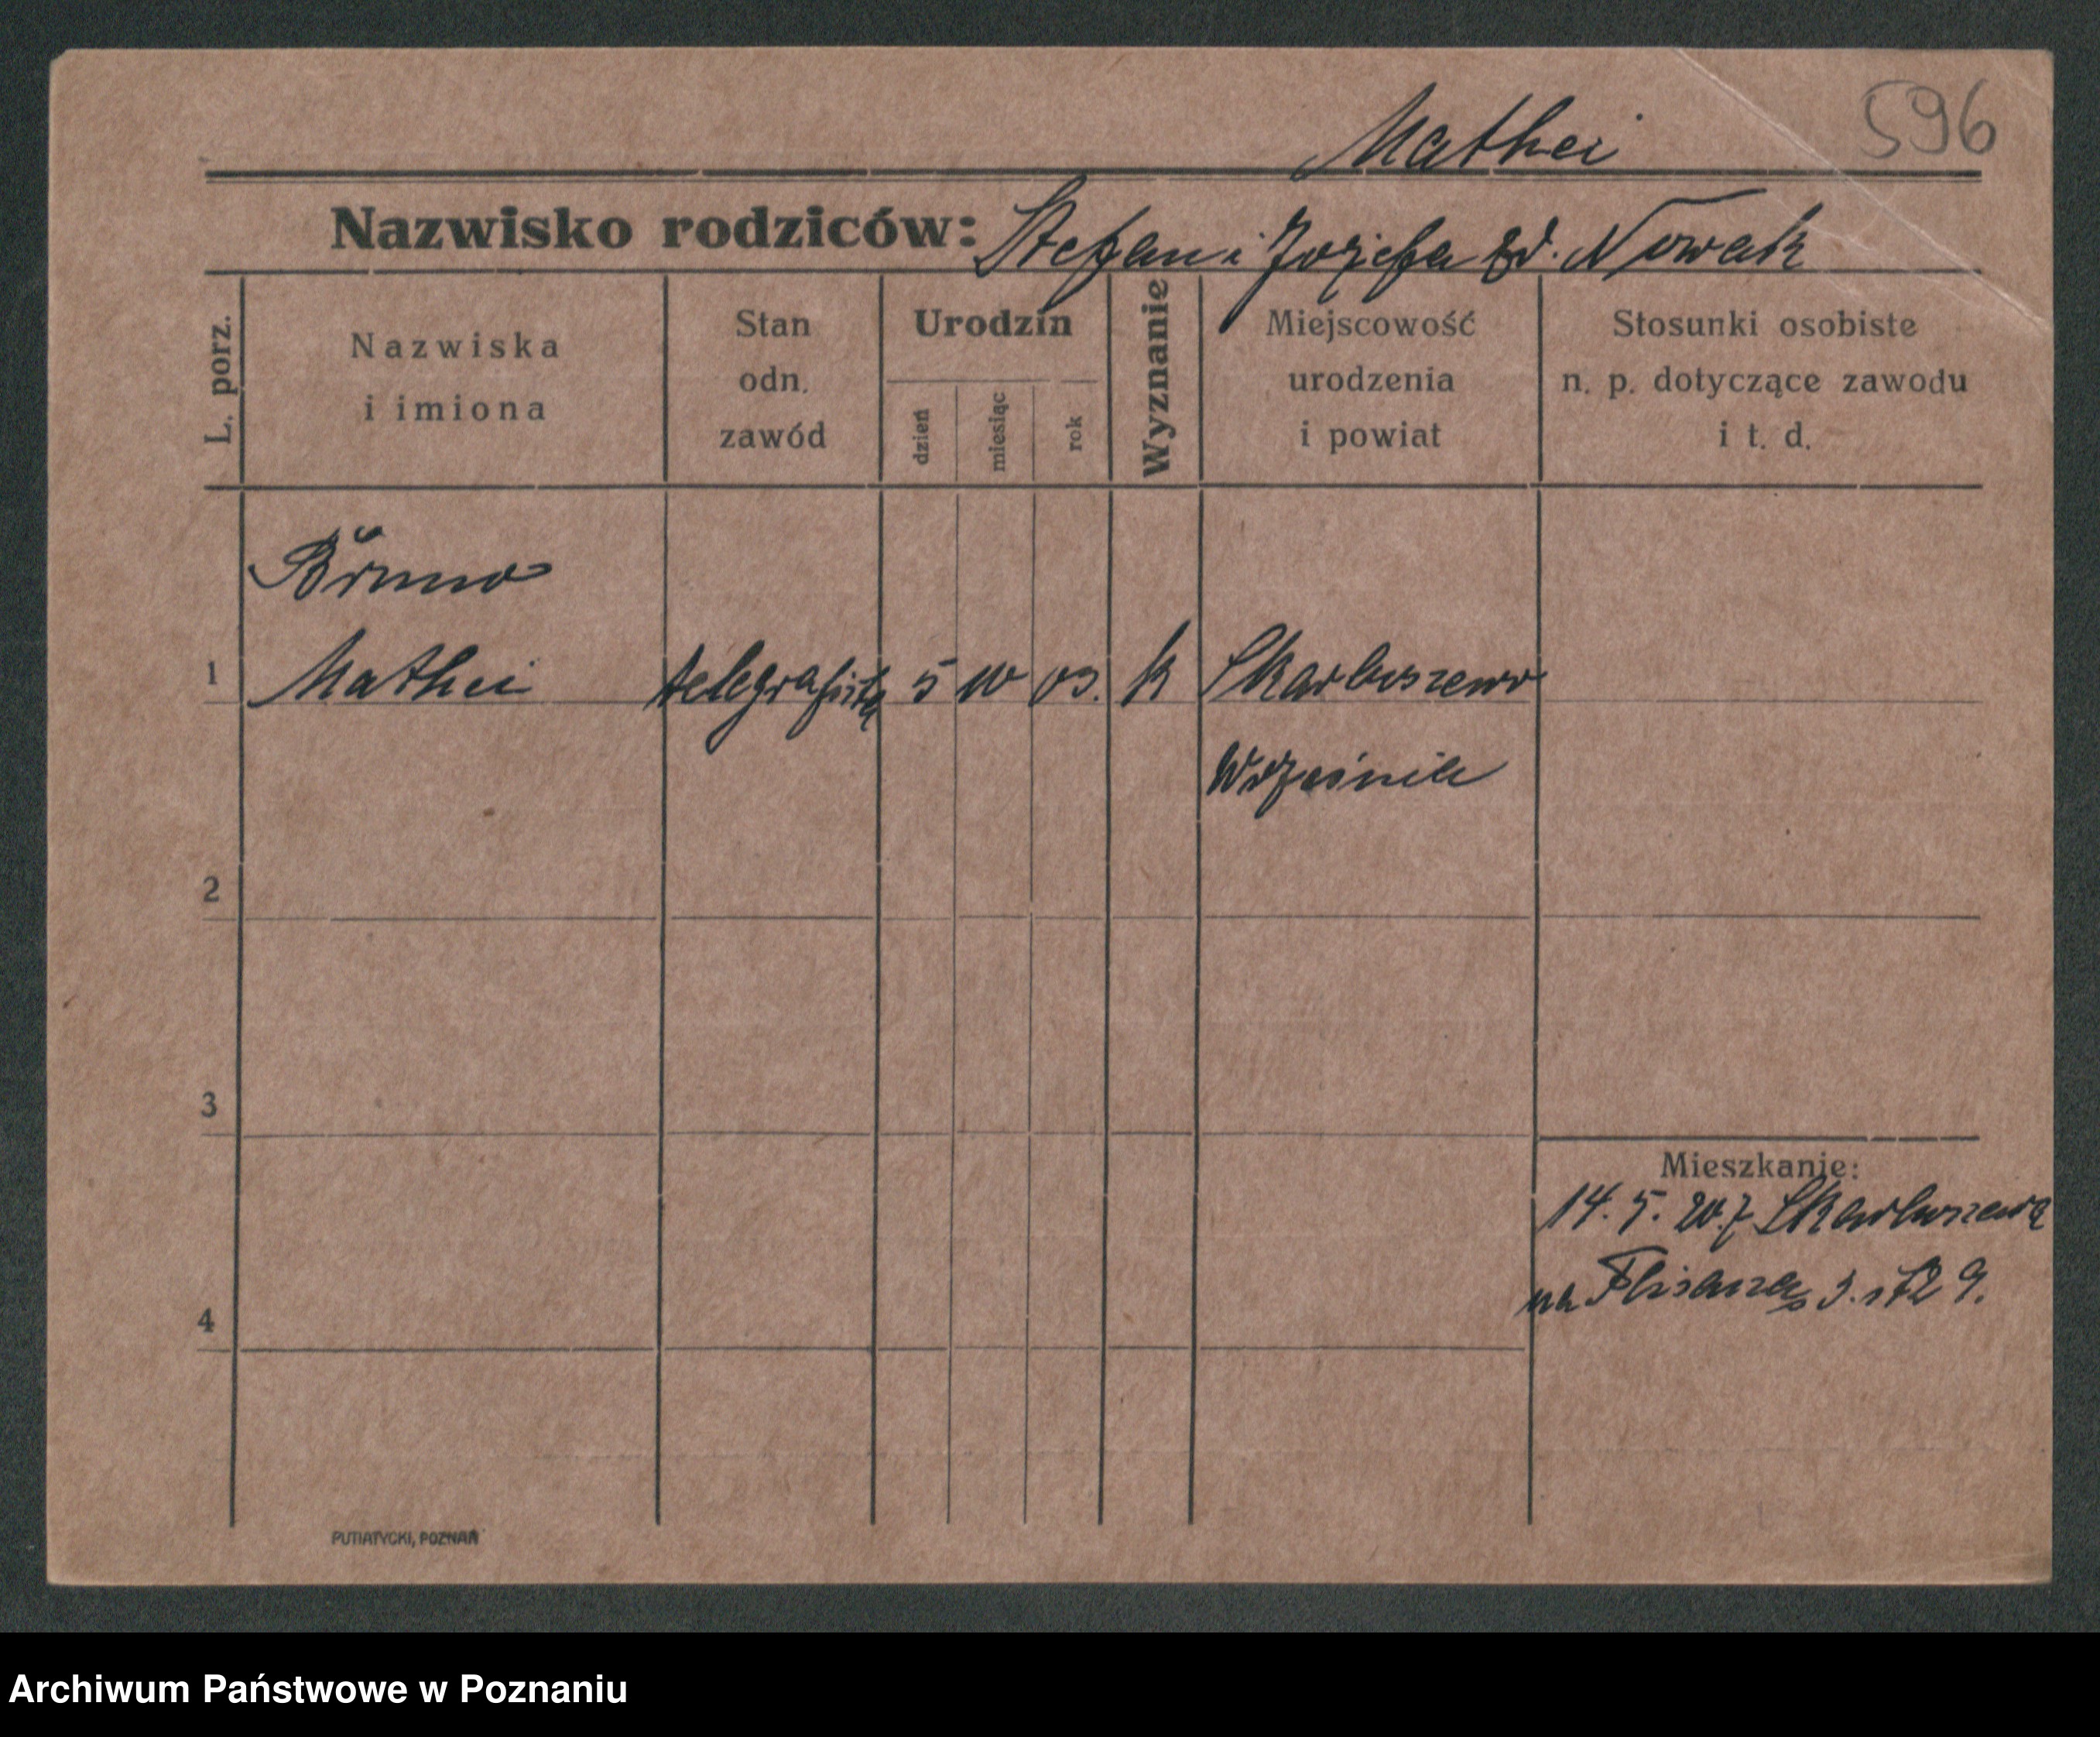 Mathei
596
Nazwisko rodziców: Stefan i Jozefa zd. Nowak
L. porz.
Nazwiska
i imiona
Stan
odn.
zawód
Urodzin
dzień
miesiąc
rok
Wyznanie
Miejscowość
urodzenia
i powiat
Stosunki osobiste
n. p. dotyczące zawodu
i t. d.
Bruno
1 Mathei telegrafista 5 10 03. k Skarboszewo
Września
2
3
Mieszkanie:
14. 5. 20. z Skarboszewa
na
4
PUTIATYCKI, POZNAŃ
Archiwum Państwowe w Poznaniu